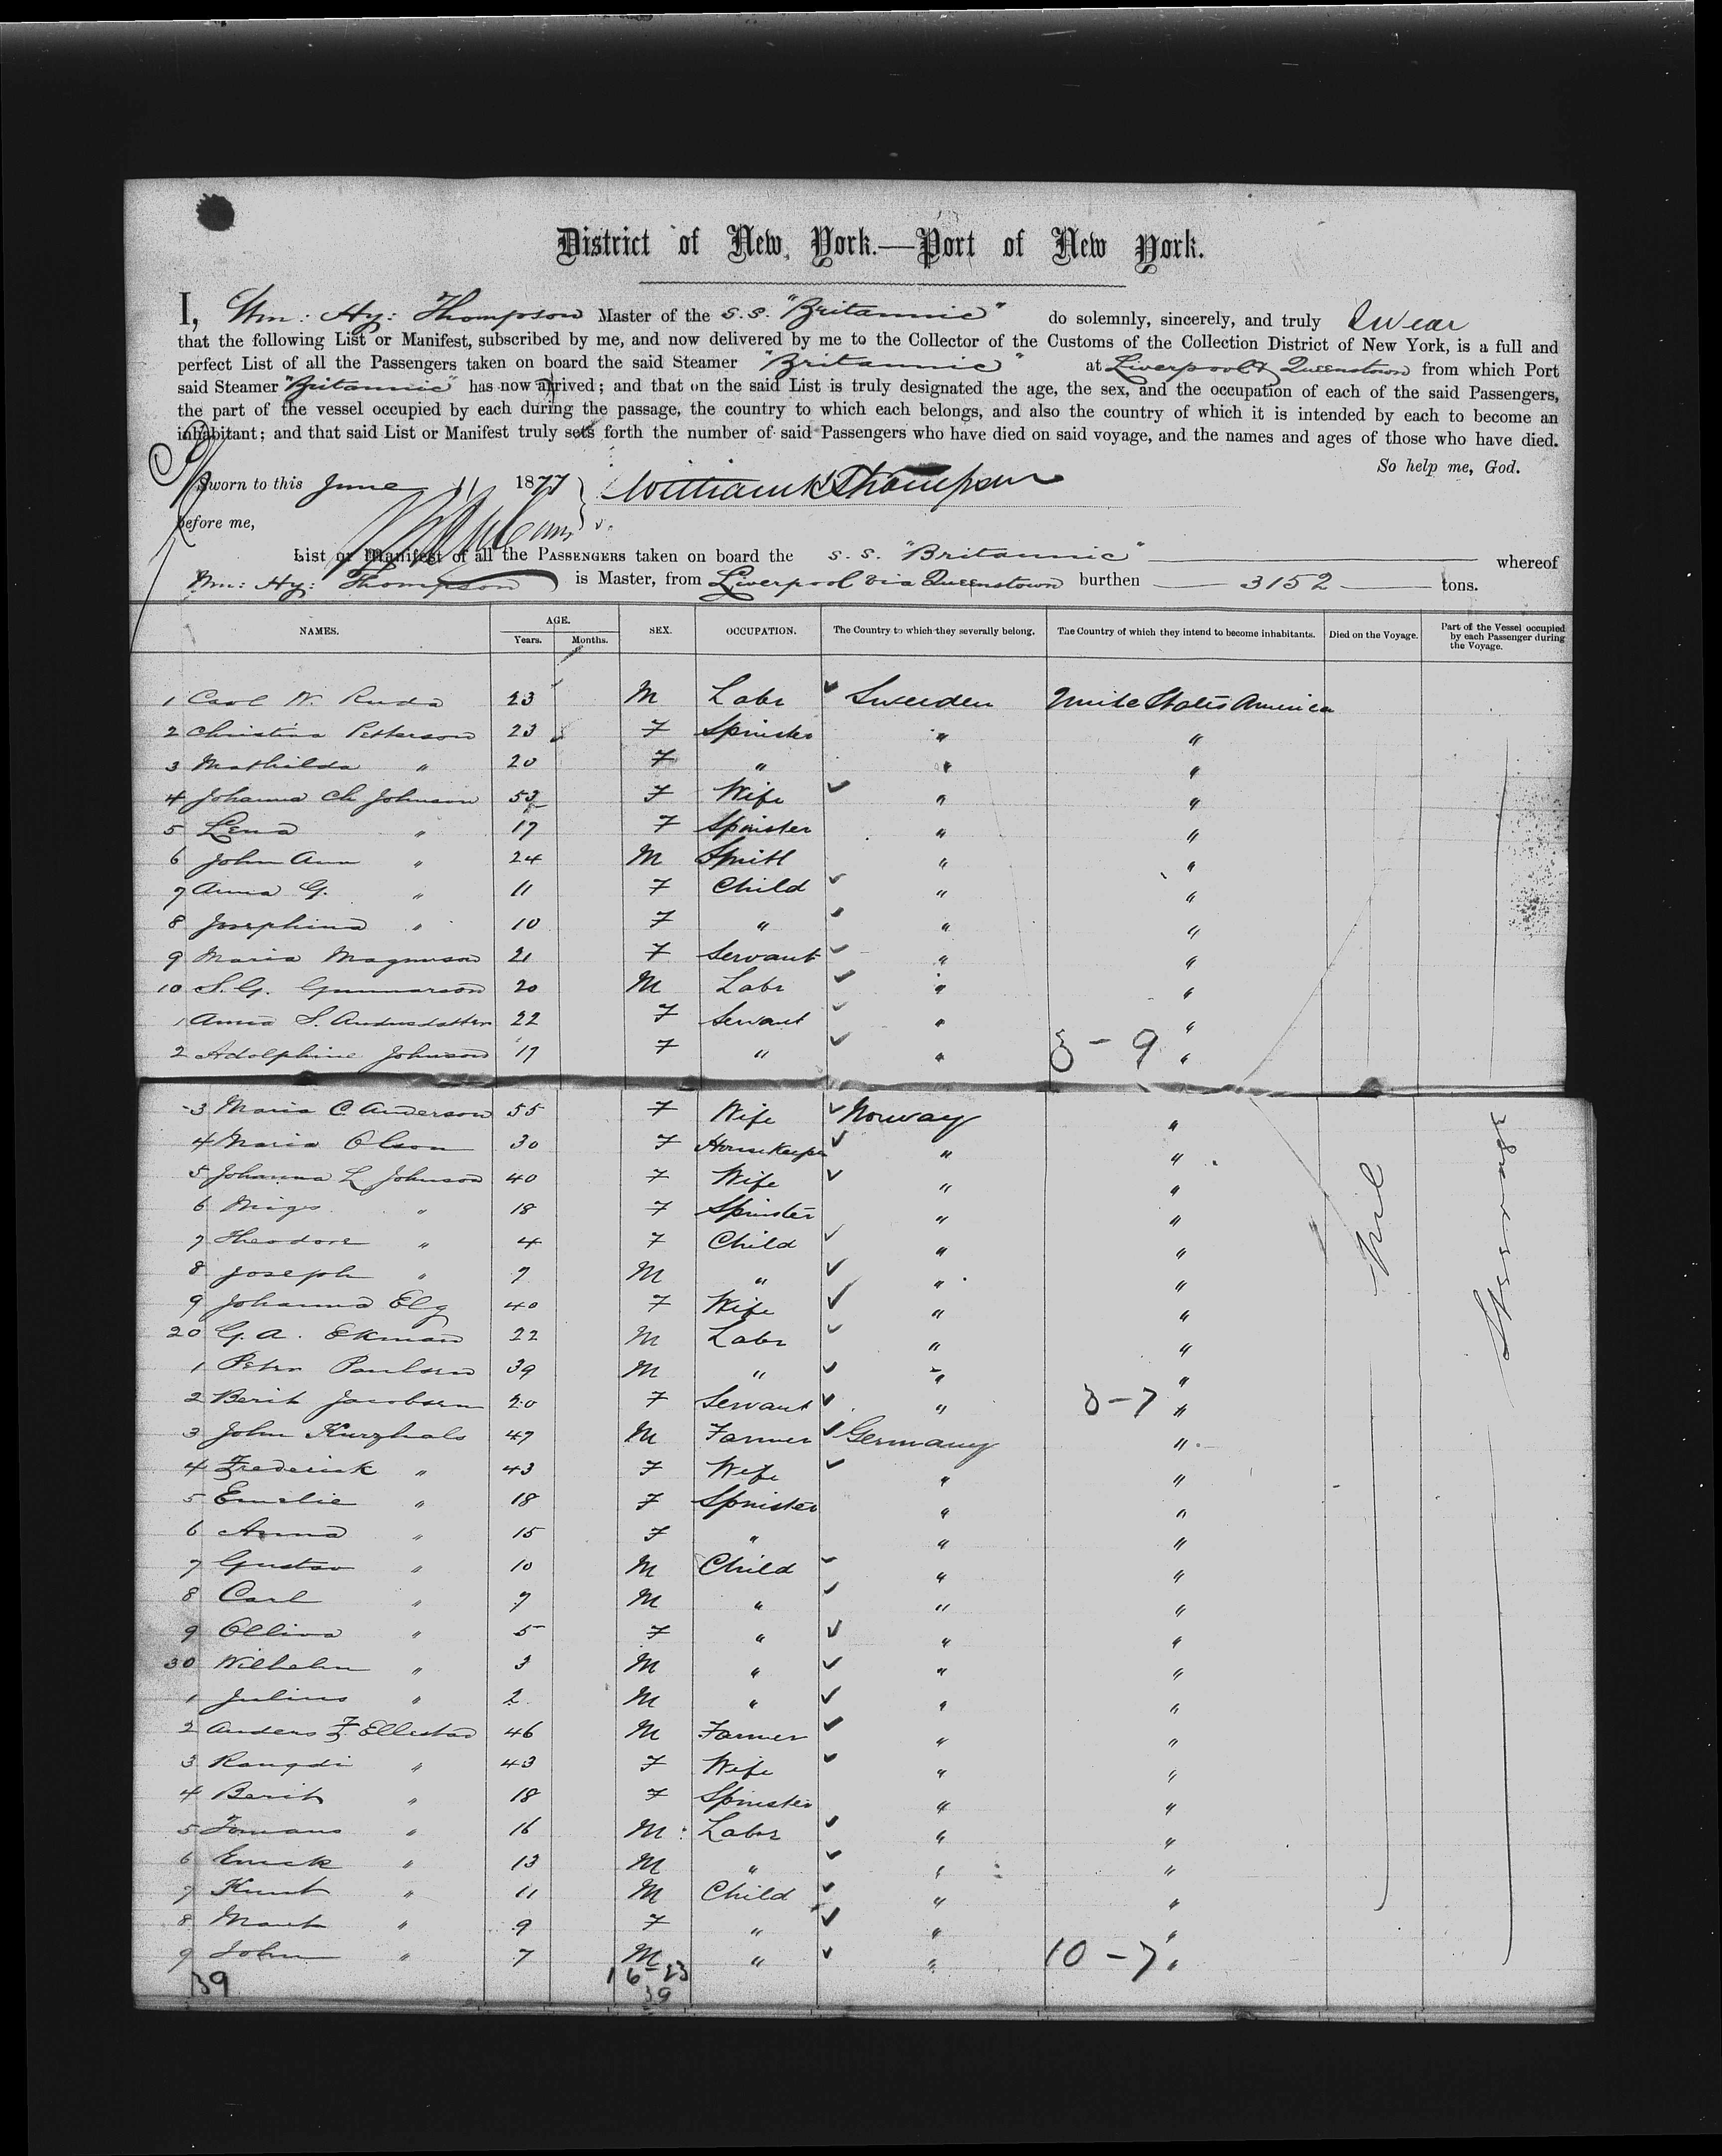 District of New York.—Port of New York.
I, Wm: Hy: Thompson Master of the S.S. "Britannic" do solemnly, sincerely, and truly Swear
that the following List or Manifest, subscribed by me, and now delivered by me to the Collector of the Customs of the Collection District of New York, is a full and
perfect List of all the Passengers taken on board the said Steamer "Britannic" at Liverpool & Queenstown from which Port
said Steamer "Britannic" has now arrived; and that on the said List is truly designated the age, the sex, and the occupation of each of the said Passengers,
the part of the vessel occupied by each during the passage, the country to which each belongs, and also the country of which it is intended by each to become an
inhabitant; and that said List or Manifest truly sets forth the number of said Passengers who have died on said voyage, and the names and ages of those who have died.
So help me, God.
Sworn to this June 11 1877 William H Thompson
before me,
List or Manifest of all the PASSENGERS taken on board the S.S. "Britannic" whereof
Wm: Hy: Thompson is Master, from Liverpool via Queenstown burthen 3152 tons.
NAMES. AGE. Years. Months. SEX. OCCUPATION. The Country to which they severally belong. The Country of which they intend to become inhabitants. Died on the Voyage. Part of the Vessel occupied by each Passenger during the Voyage.
1 Carl W. Ruda 23 M Labr Sweden Unite States America
2 Christina Petterson 23 F Spinster " "
3 Mathilda " 20 F " " "
4 Johanna Ch Johnson 53 F Wife " "
5 Lena " 17 F Spinster " "
6 John Aun " 24 M Smith " "
7 Anna G. " 11 F Child " "
8 Josephina " 10 F " " "
9 Maria Magnuson 21 F Servant " "
10 S. G. Gunnarson 20 M Labr " "
1 Anna S. Andersdatter 22 F Servant " "
2 Adolphine Johnson 17 F " " 3 - 9 "
3 Maria C. Anderson 55 F Wife Norway "
4 Maria Olson 30 F Housekeeper " "
5 Johanna L Johnson 40 F Wife " "
6 " 18 F Spinster " "
7 Theodore " 4 F Child " "
8 Joseph " 7 M " " "
9 Johanna Elg 40 F Wife " "
20 G. A. Ekman 22 M Labr " "
1 Peter Paulsen 39 M " " "
2 Berit Jacobsen 20 F Servant " 3-7 "
3 John Kurzhals 47 M Farmer Germany "
4 Frederick " 43 F Wife " "
5 Emilie " 18 F Spinster " "
6 Anna " 15 F " " "
7 Gustav " 10 M Child " "
8 Carl " 7 M " " "
9 Ollina " 5 F " " "
30 Wilhelm " 3 M " " "
1 Julius " 2 M " " "
2 Anders F Ellestad 46 M Farmer " "
3 Rangdi " 43 F Wife " "
4 Berit " 18 F Spinster " "
5 Tomans " 16 M Labr " "
6 Erick " 13 M " " "
7 Knut " 11 M Child " "
8 Marit " 9 F " " "
9 John " 7 M " " 10 - 7 "
39 16-23
39
Nil
Steerage